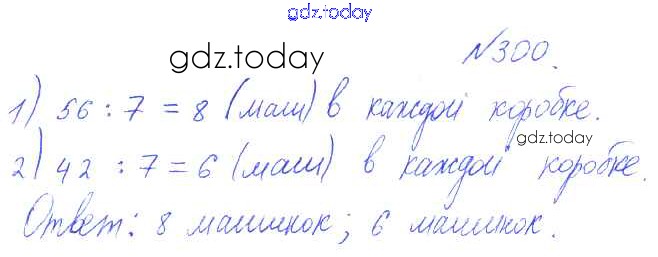 gdz.today
gdz.today
№300.
1) 56 : 7 = 8 (маш) в каждой коробке.
gdz.today
2) 42 : 7 = 6 (маш) в каждой коробке.
Ответ: 8 машинок; 6 машинок.